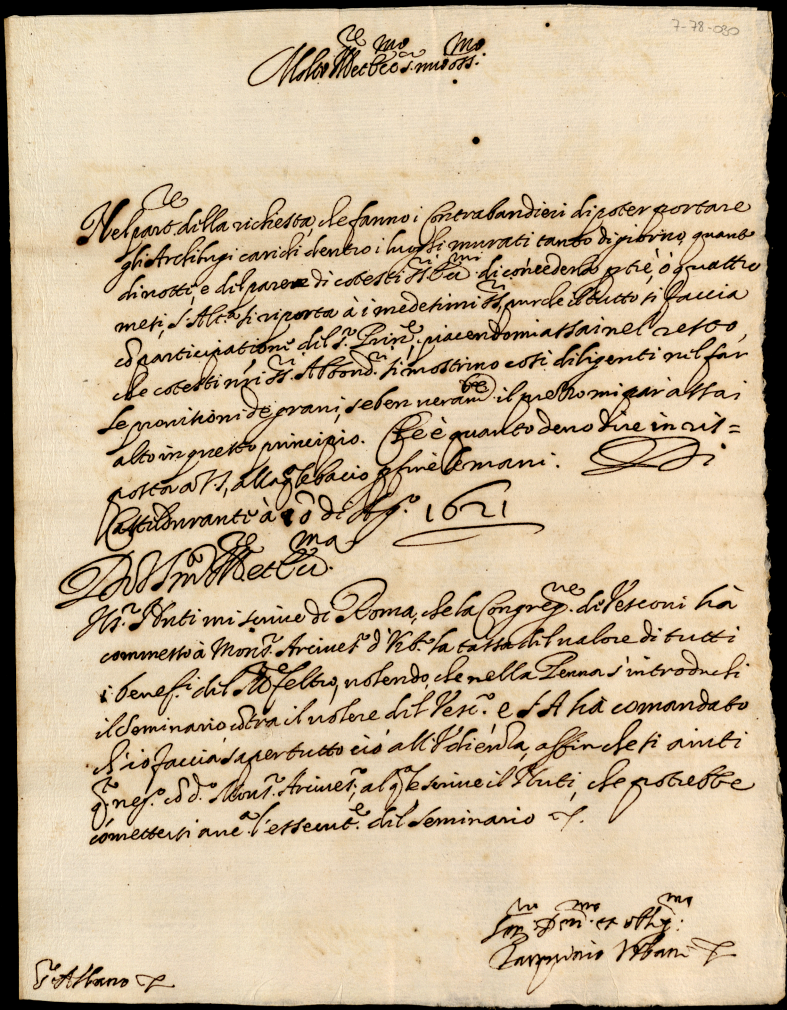 7-78-080
Molto Ill.re et Ecc.mo s.r mio oss.mo
Nel part.re della richesta, che fanno i Contrabandieri di poter portare
gli Archibugi carichi dentro i luoghi murati tanto di giorno, quanto
di notte, e del parere di cotesti ss.ri Ecc.mi di concederlo p tre, ò quattro
mesi, S. Alt.a si riporta à i medesimi ss.ri, pur che il tutto si faccia
cõ participatione del s.r Prin.e, piacendomi assai nel resto,
che cotesti n'ri ss.ri Abbond.ri si mostrino così diligenti nel far
le provisioni de grani, se ben veram.te il prezzo mi par assai
alto in questo principio. Che è quanto devo dire in ris=
posta à V.S., alla q.le bacio p fine le mani. Di
Casteldurante à 20 di Ag.o 1621
Di V.S. m.to Ill.re et Ecc.ma
Il s.r Huti mi scrive di Roma, che la Congreg.ne de Vescovi hà
commesso à Mons.r Arcives.o d'Urb.o la tassa del valore di tutti
i benef.i del M.e feltro, volendo, che nella Penna s'introduchi
il seminario cõtra il volere del Vesc.o e S A hà comandato
ch'io faccia saper tutto ciò all'Udienza, affin che si aiuti
q.to neg.o cõ d.o Mons.r Arcives.o, al q.le scrive il Huti, che potrebbe
cõmettersi anc.a l'essecut.e del seminario
Ser.re et obblig.mo
Urbani
S.r Albano